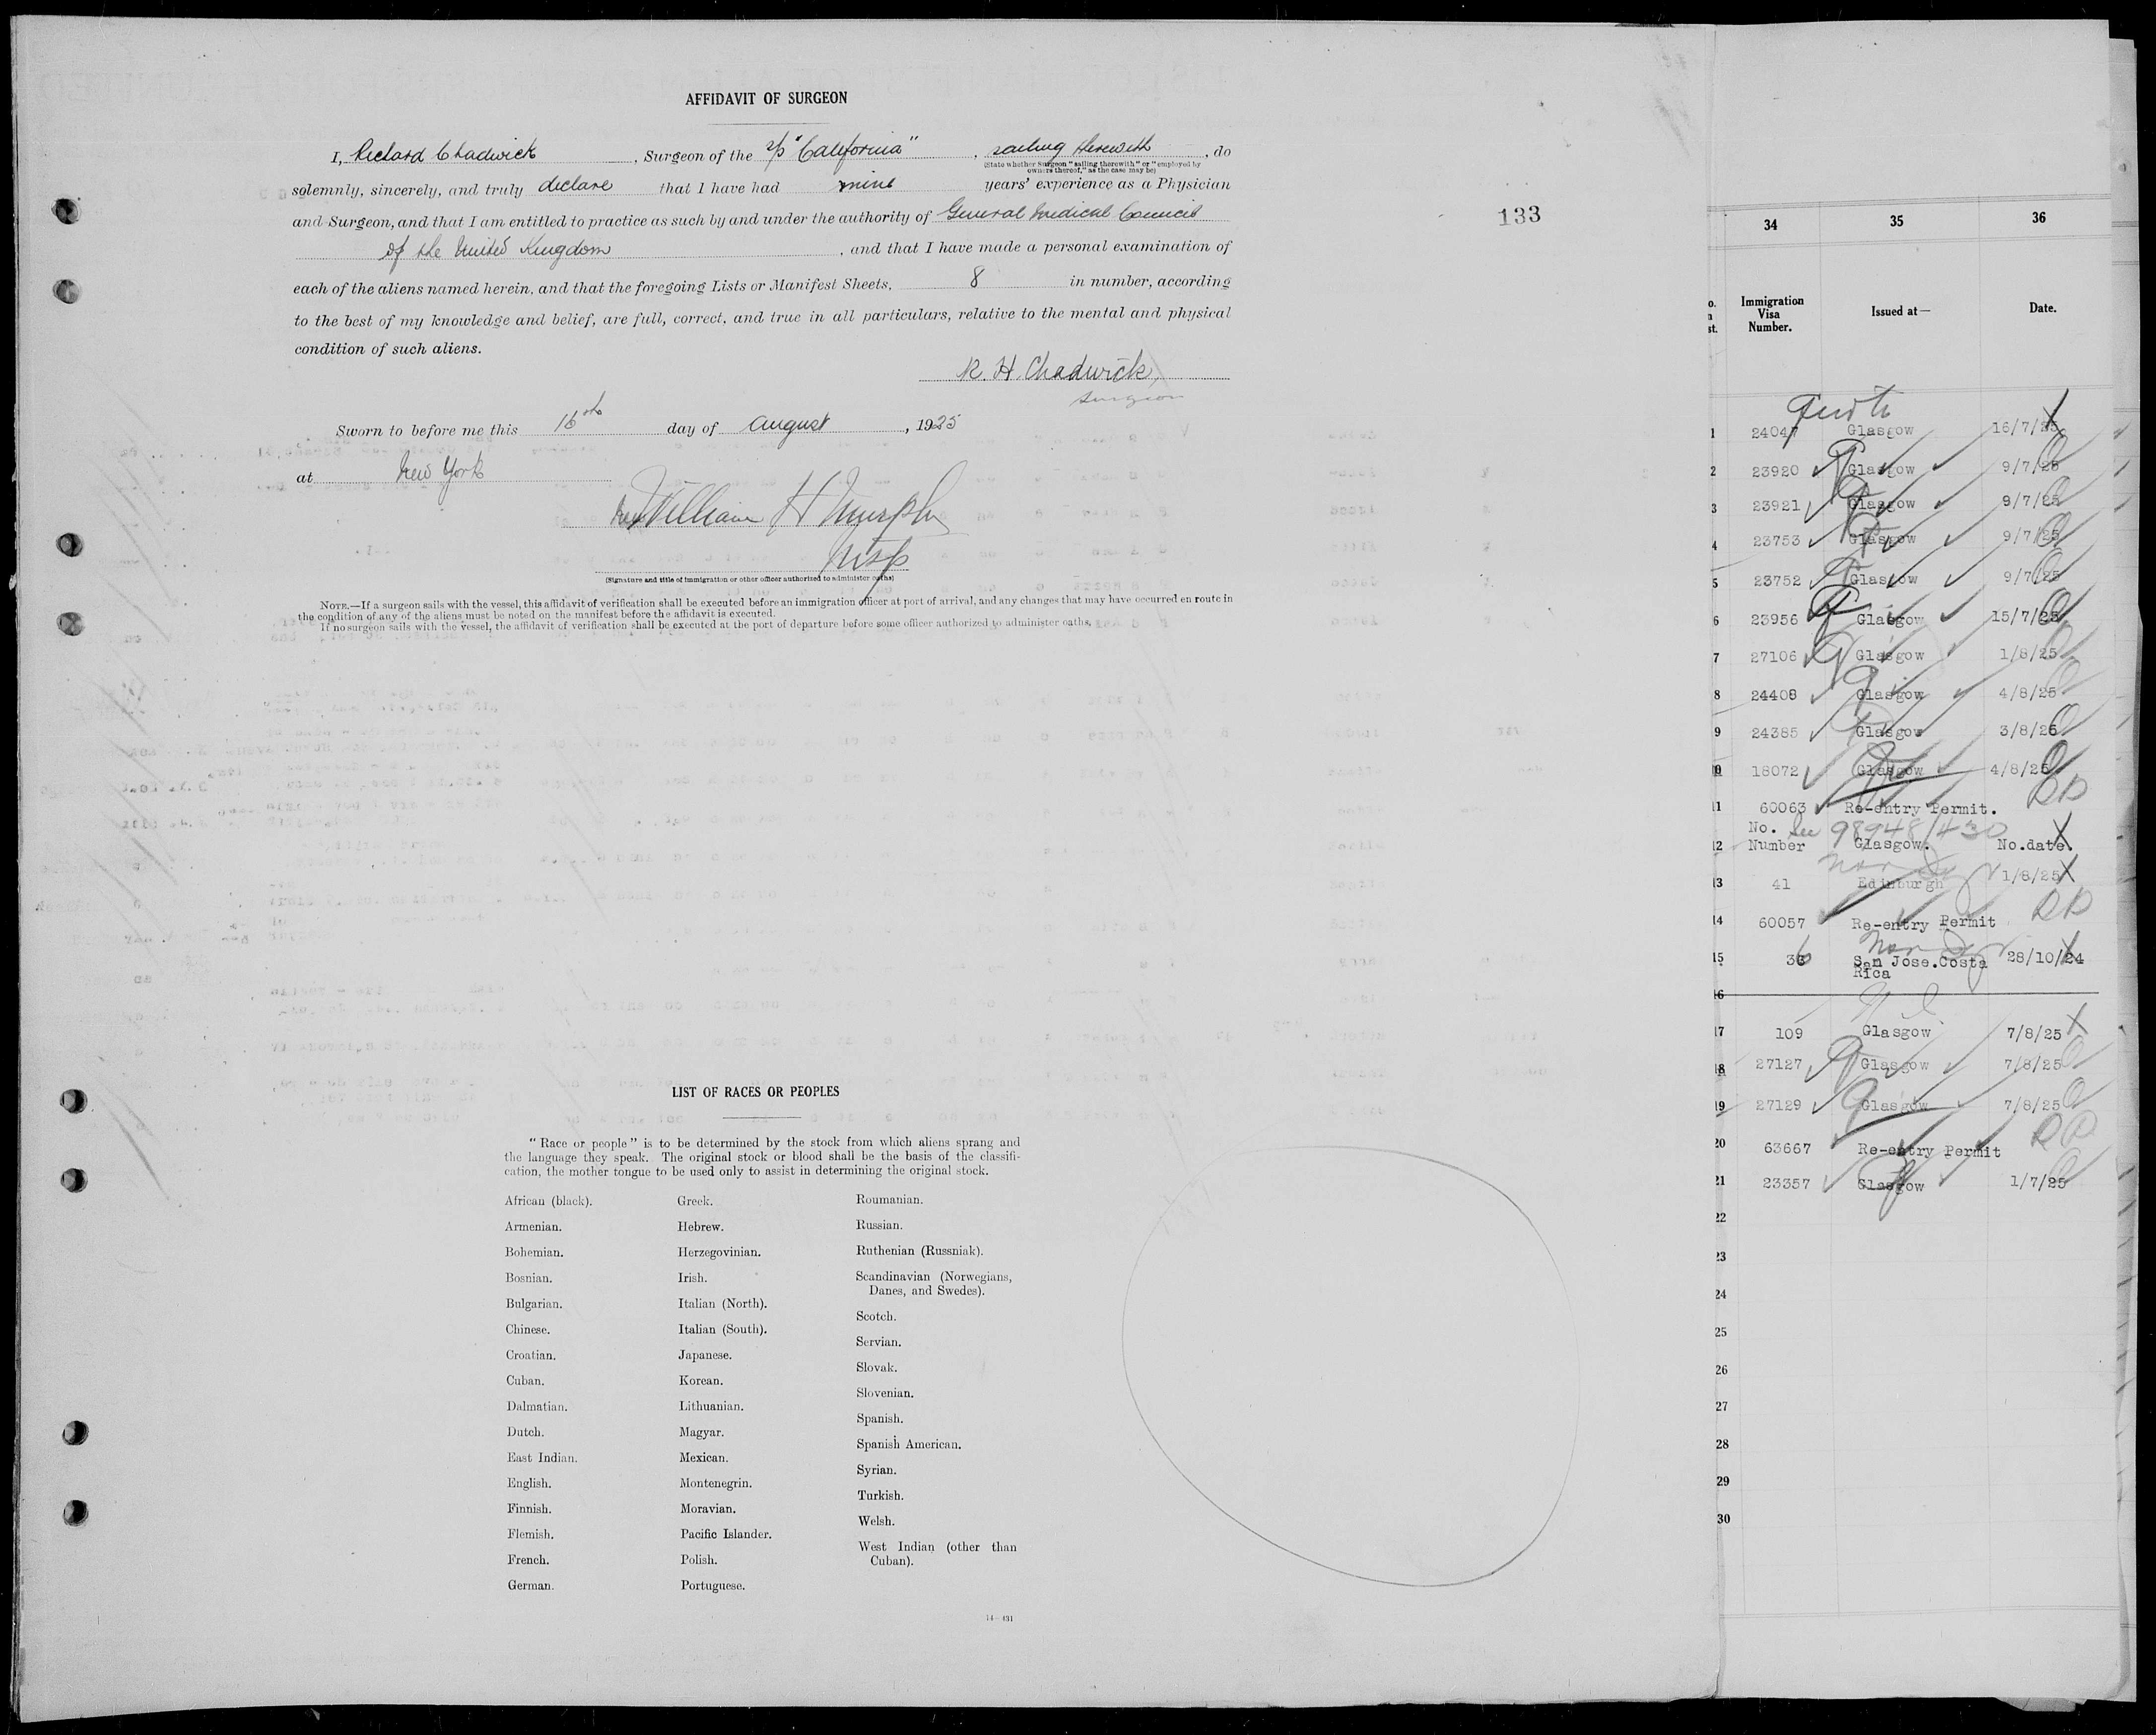 AFFIDAVIT OF SURGEON
I, Richard Chadwick, Surgeon of the s/s "California", sailing therewith, do
(State whether Surgeon "sailing therewith" or "employed by
owners thereof," as the case may be)
solemnly, sincerely, and truly declare that I have had nine years' experience as a Physician
and Surgeon, and that I am entitled to practice as such by and under the authority of General Medical Council
of the United Kingdom, and that I have made a personal examination of
each of the aliens named herein, and that the foregoing Lists or Manifest Sheets, 8 in number, according
to the best of my knowledge and belief, are full, correct, and true in all particulars, relative to the mental and physical
condition of such aliens.
R. H. Chadwick,
Surgeon
Sworn to before me this 16th day of August, 1925
at New York
William H Murphy
Insp
(Signature and title of immigration or other officer authorized to administer oaths)
NOTE.—If a surgeon sails with the vessel, this affidavit of verification shall be executed before an immigration officer at port of arrival, and any changes that may have occurred en route in
the condition of any of the aliens must be noted on the manifest before the affidavit is executed.
If no surgeon sails with the vessel, the affidavit of verification shall be executed at the port of departure before some officer authorized to administer oaths.
133
LIST OF RACES OR PEOPLES
"Race or people" is to be determined by the stock from which aliens sprang and
the language they speak. The original stock or blood shall be the basis of the classifi-
cation, the mother tongue to be used only to assist in determining the original stock.
African (black).
Armenian.
Bohemian.
Bosnian.
Bulgarian.
Chinese.
Croatian.
Cuban.
Dalmatian.
Dutch.
East Indian.
English.
Finnish.
Flemish.
French.
German.
Greek.
Hebrew.
Herzegovinian.
Irish.
Italian (North).
Italian (South).
Japanese.
Korean.
Lithuanian.
Magyar.
Mexican.
Montenegrin.
Moravian.
Pacific Islander.
Polish.
Portuguese.
Roumanian.
Russian.
Ruthenian (Russniak).
Scandinavian (Norwegians,
Danes, and Swedes).
Scotch.
Servian.
Slovak.
Slovenian.
Spanish.
Spanish American.
Syrian.
Turkish.
Welsh.
West Indian (other than
Cuban).
34 35 36
Immigration
Visa
Number.
Issued at—
Date.
1 24047 Glasgow 16/7/25
2 23920 Glasgow 9/7/25
3 23921 Glasgow 9/7/25
4 23753 Glasgow 9/7/25
5 23752 Glasgow 9/7/25
6 23956 Glasgow 15/7/25
7 27106 Glasgow 1/8/25
8 24408 Glasgow 4/8/25
9 24385 Glasgow 3/8/25
10 18072 Glasgow 4/8/25
11 60063 Re-entry Permit. RP
No. 98948/430
12 Number Glasgow. No.date.
13 41 Edinburgh 1/8/25
14 60057 Re-entry Permit RP
15 36 San Jose.Costa 28/10/24
Rica
16
17 109 Glasgow 7/8/25
18 27127 Glasgow 7/8/25
19 27129 Glasgow 7/8/25
20 63667 Re-entry Permit RP
21 23357 Glasgow 1/7/25
22
23
24
25
26
27
28
29
30